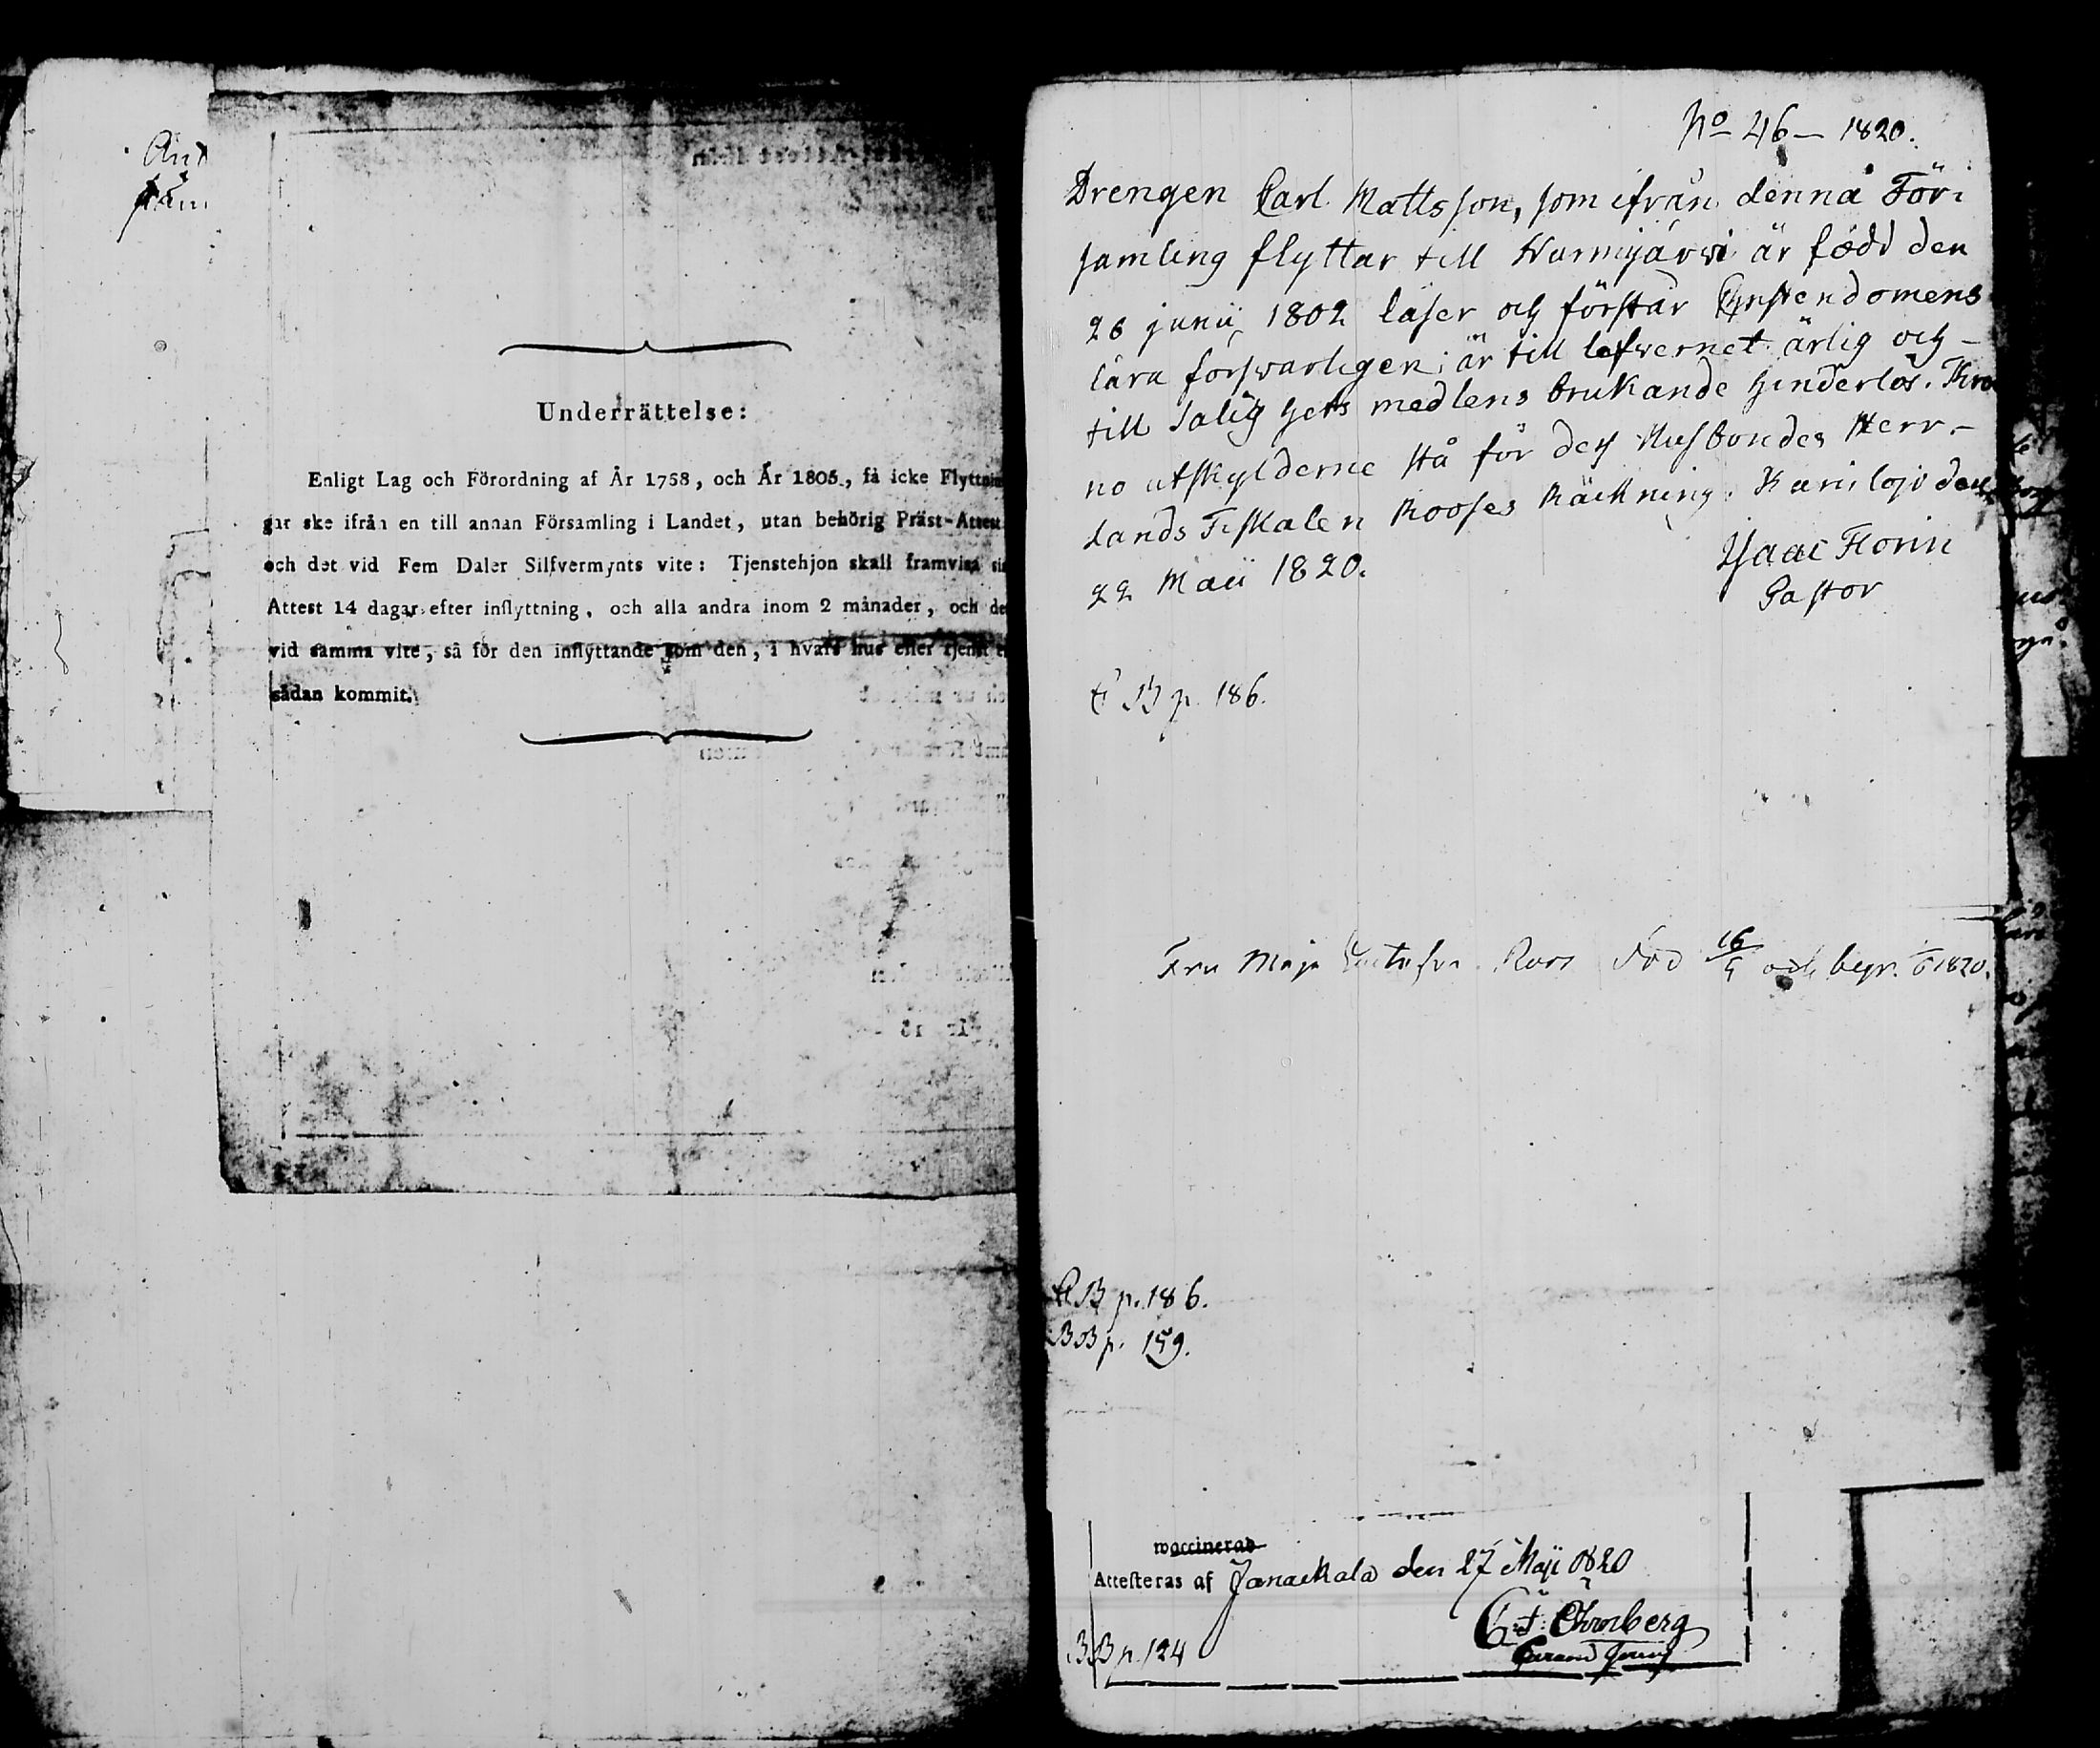 Underrättelse:
Enligt Lag och Förordning af År 1758, och År 1805., få icke Flyttnin
gar ske ifrån en till annan Församling i Landet, utan behörig Präst-Attest
och det vid Fem Daler Silfvermynts vite: Tjenstehjon skall framvisa si
Attest 14 dagar efter inflyttning, och alla andra inom 2 månader, och de
vid samma vite, så för den inflyttande som den, i hvars hus eller tjenst
sådan kommit.
No 46 - 1820.
Drengen Carl Mattsson, som ifrån denna För:
samling flyttar till Nurmijärwi är född den
26 junii 1802 läser och förstår Christendomens
lära förswarligen; är till lefwernet ärlig och -
till salighets medlens brukande hinderlös. Kro
no utskylderne stå för des Husbondes Herr -
Lands Fiskalen Rooses Räckning. Karislojo den
22 Maii 1820.
Isaac Florin
Pastor
B p. 186.
Fru Maja Gustafva Roos död 16/5 och begr. 1820.
B p. 186.
BB p. 159.
waccinerad
Attesteras af Janackala den 27 Maji 1820
Öhrnberg
BB p. 124